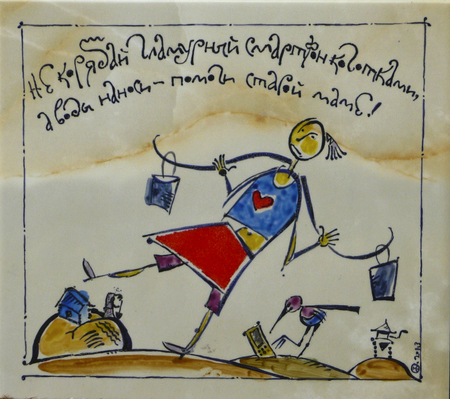 Не корябай гламурный смартфон коготками,
а воды наноси – помоги старой маме!